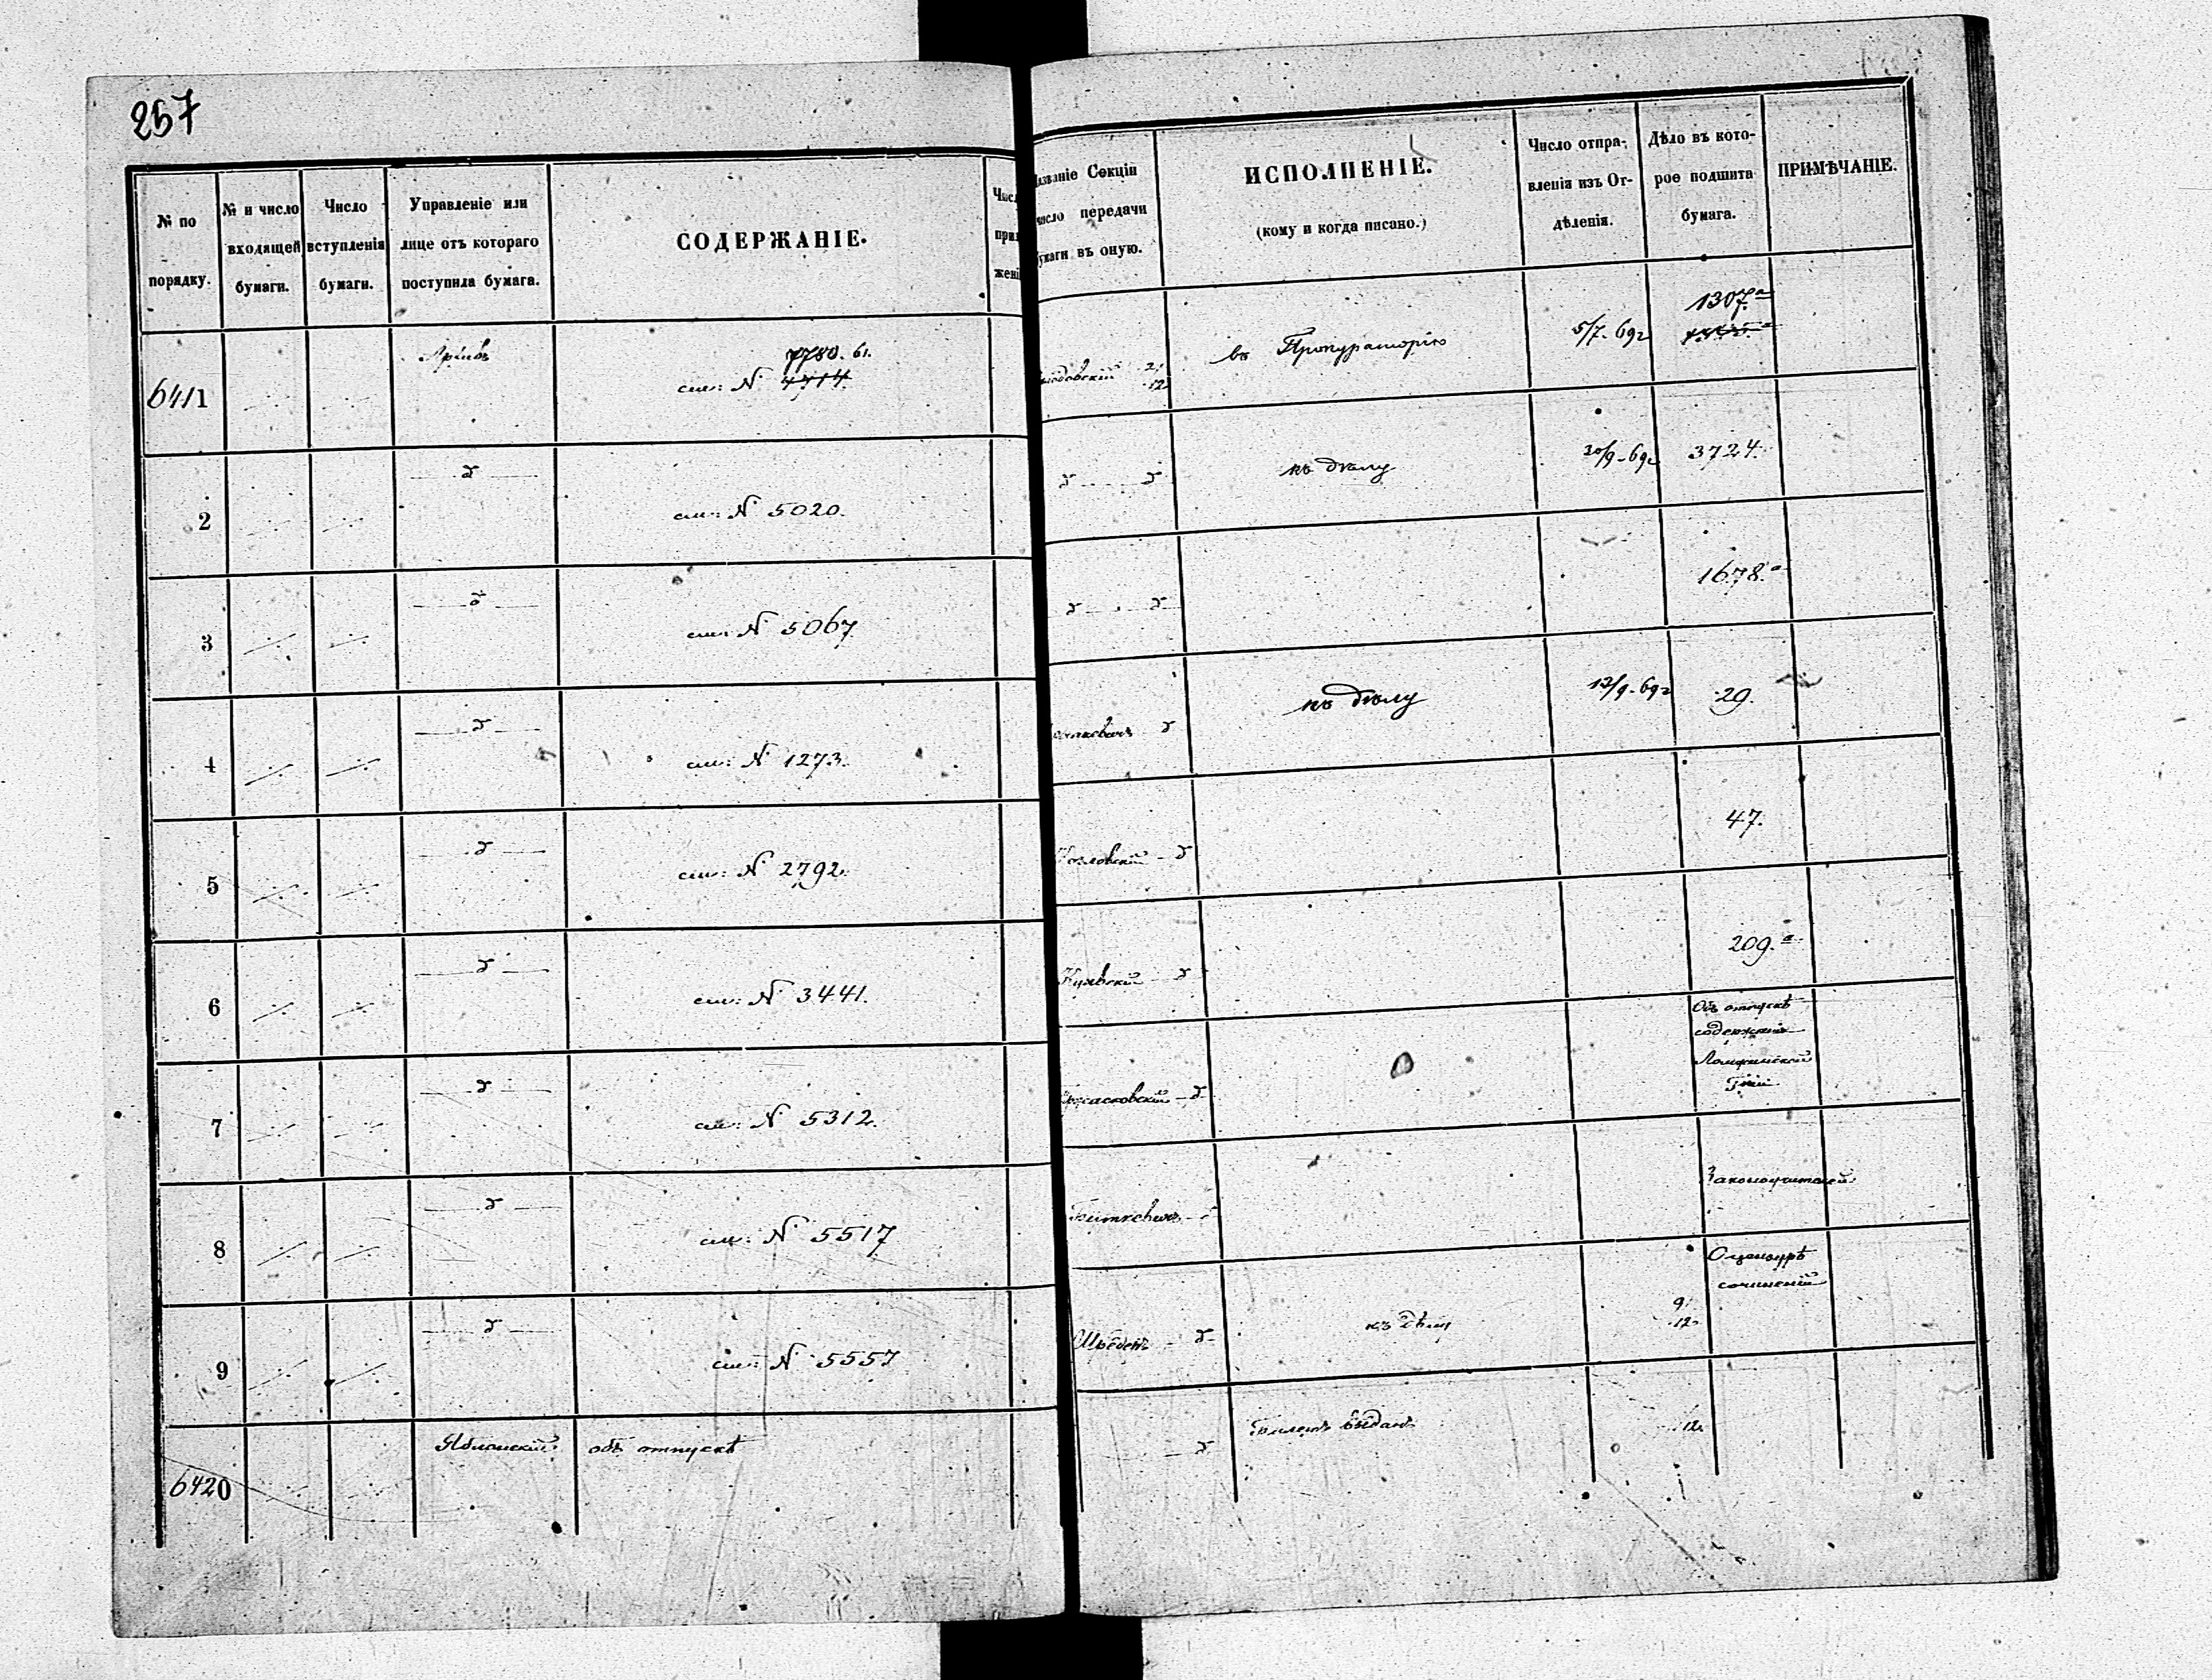 257
№ по порядку.
№ и число входящей бумаги.
Число вступленія бумаги.
Управленіе или лице отъ котораго поступила бумага.
СОДЕРЖАНІЕ.
Числ
прил
жені
азваніе Секціи
число передачи
умаги въ оную.
ИСПОЛНЕНІЕ.
(кому и когда писано.)
Число отпра-
вленія изъ От-
дѣленія.
Дѣло въ кото-
рое подшита
бумага.
ПРИМѢЧАНІЕ.
6411
Архивъ
7780. 61.
см: N 4714
21
12
въ Прокураторію
5/7. 69 г
1307.а
2
см: N 5020.
къ дѣлу
30/9. 69 г
3724.
3
см: N 5067
1678.а
4
см: N 1273.
къ дѣлу
12/9. 69 г
29.
5
см: N 2792.
Козловскій
47.
6
см: N 3441.
209.а
7
см: N 5312.
Объ отпускѣ
содержанія
Ломжинской
Гніи
8
см: N 5517
Законоучителей
9
см: N 5557
къ дѣлу
9
12
О цензурѣ
сочиненій
6420
Яблонскій
объ отпускѣ
Билетъ выданъ
12